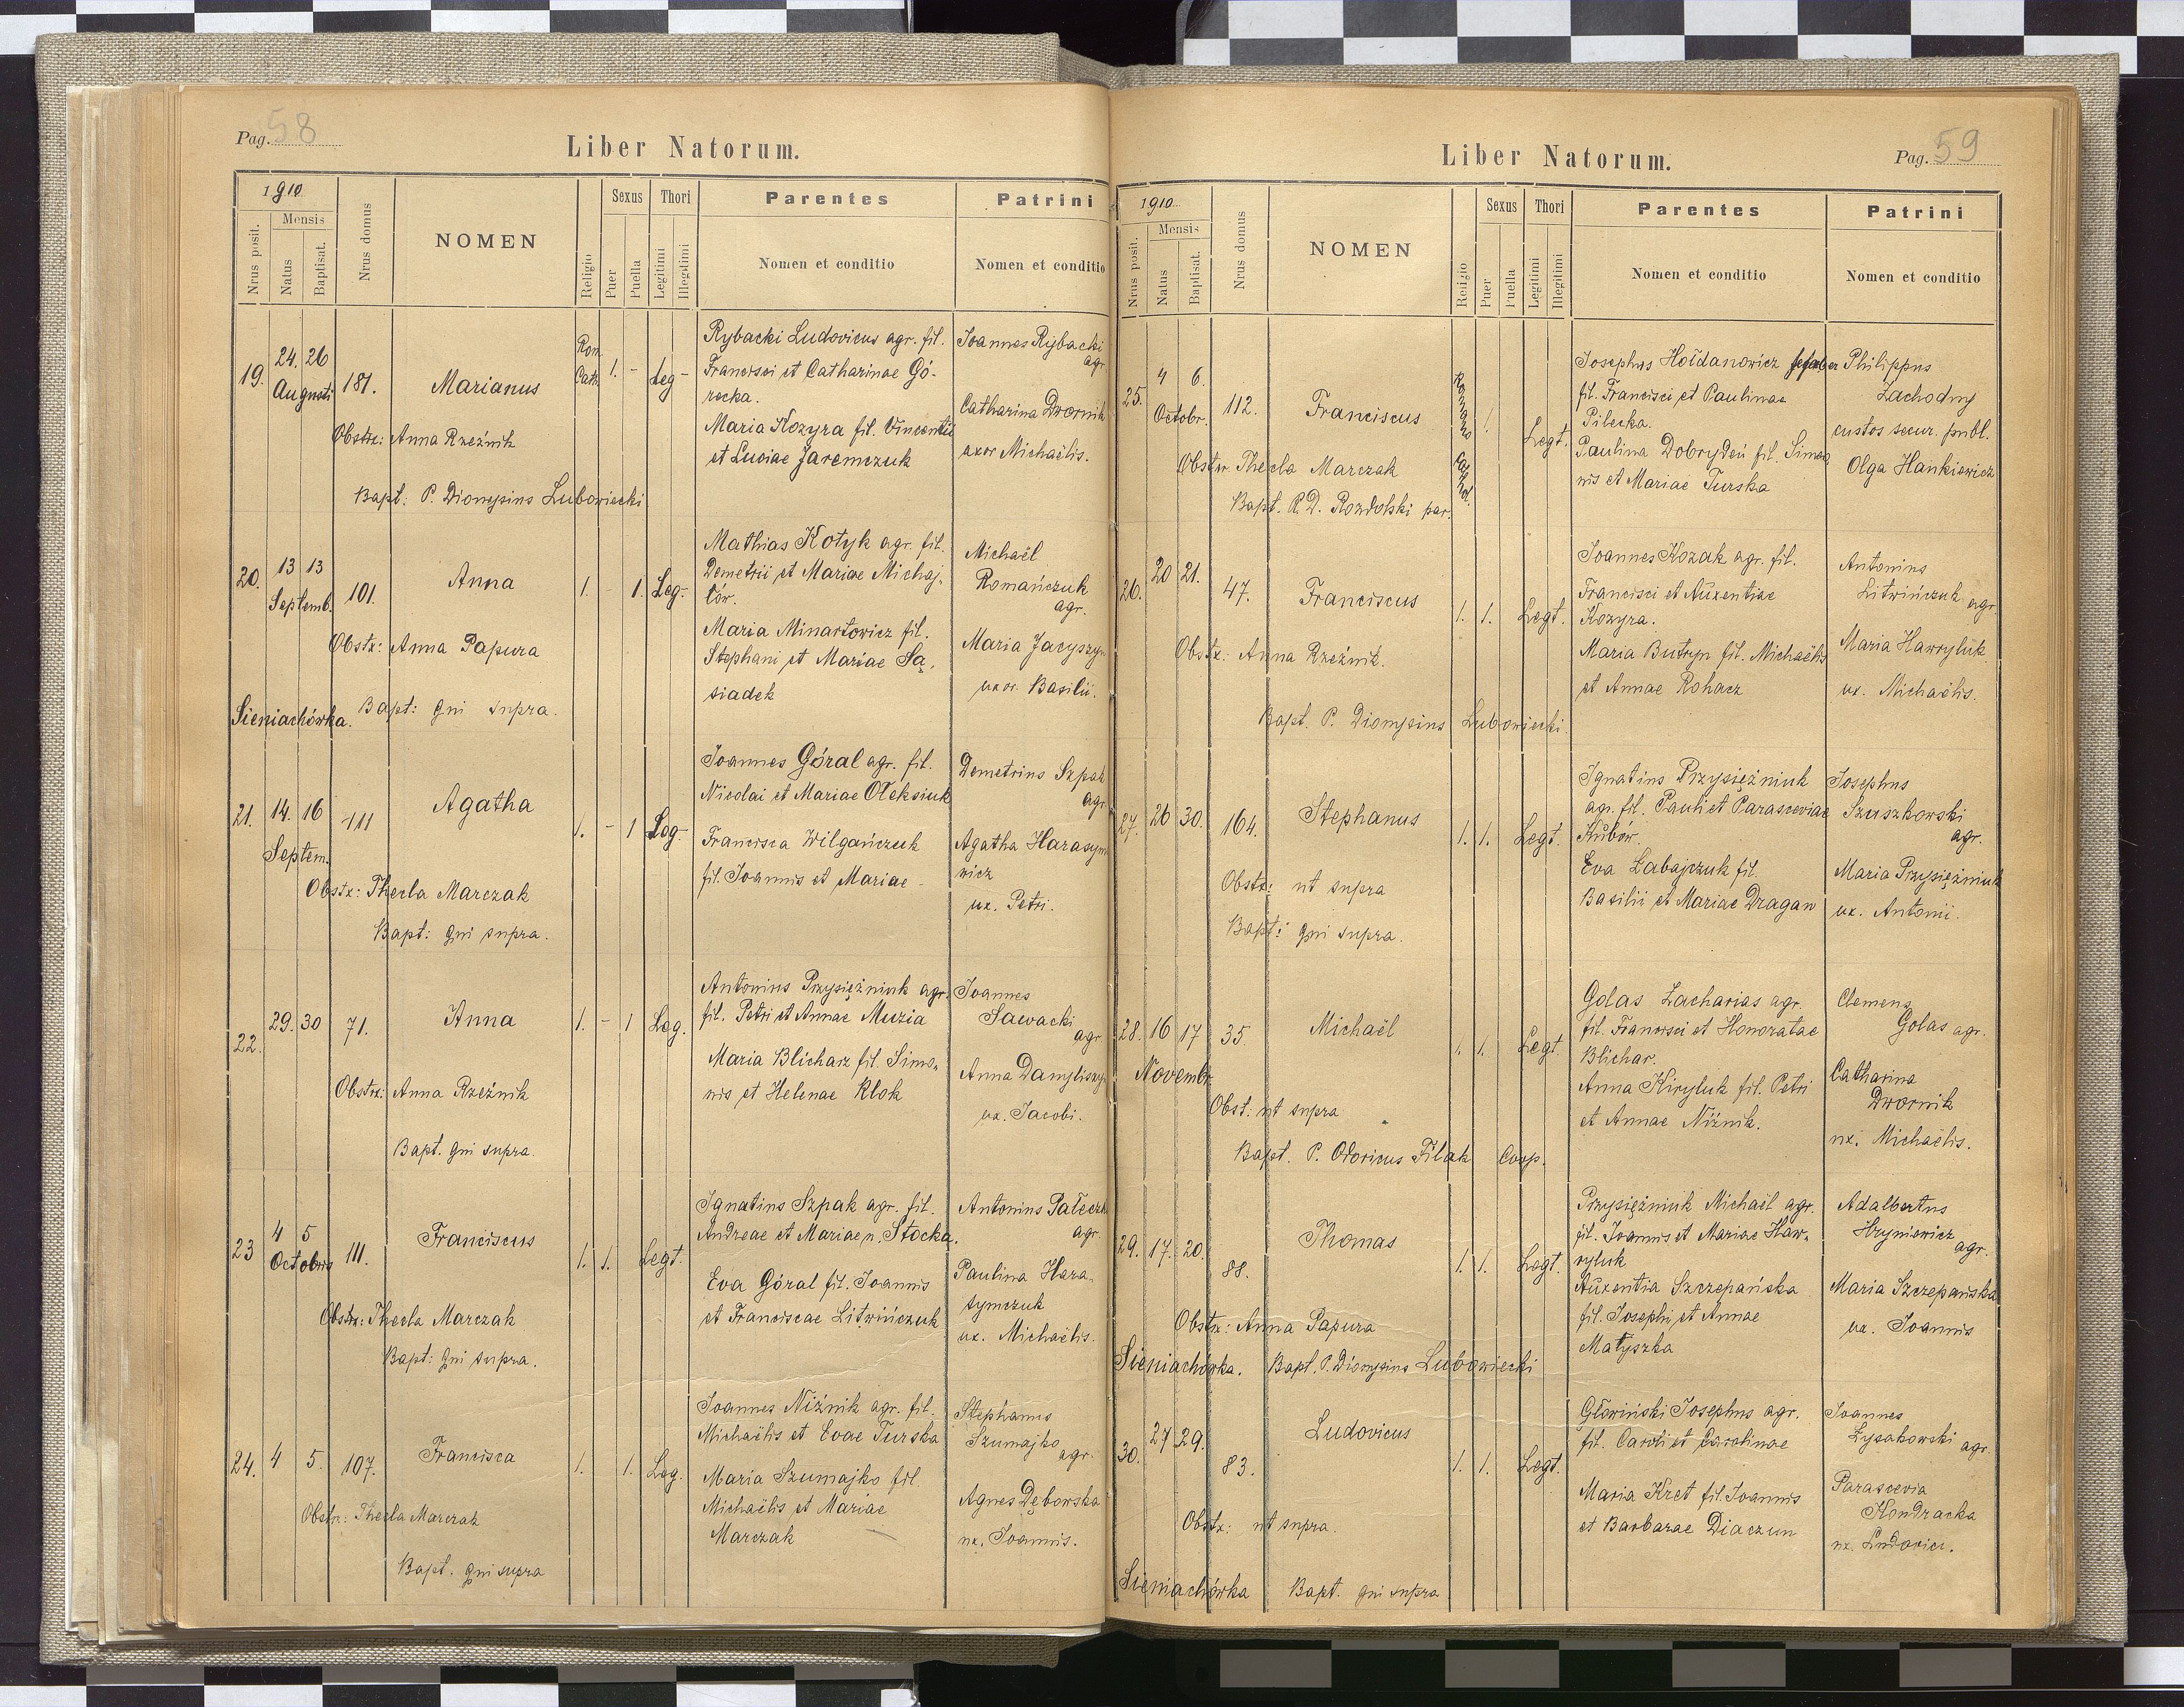 Pag. 58
Liber Natorum.
1910
Nrus posit.
Mensis
Natus
Baptisat.
Nrus domus
NOMEN
Religio
Sexus
Puer
Puella
Thori
Legitimi
Illegitimi
Parentes
Nomen et conditio
Patrini
Nomen et conditio
19. 24. 26 Augusti 181. Marianus Rom. Cath. 1. - Leg -
Rybacki Ludovicus agr. fil.
Francisci et Catharinae Gó-
recka.
Maria Kozyra fil. Vincentii
et Luciae Jaremczuk
Joannes Rybacki
agr.
Catharina Dwornik
uxor Michaëlis.
Obstx: Anna Rzeźnik
Bapt: P. Dionysius Lubowiecki
20. 13 13 Septemb. 101. Anna 1. - 1. Leg.
Mathias Kotyk agr. fil.
Demetrii et Mariae Michaj-
łów.
Maria Minartowicz fil.
Stephani et Mariae Są-
siadek
Michaël
Romańczuk
agr.
Maria Jacyszyn
uxor. Basilii.
Obstx: Anna Papura
Sieniachówka. Bapt: qui supra.
21. 14. 16 Septem. 111 Agatha 1. - 1 Leg.
Joannes Góral agr. fil.
Nicolai et Mariae Oleksiuk
Francisca Wilgańczuk
fil. Joannis et Mariae -
Demetrius Szpak
agr.
Agatha Harasym
wicz
ux. Petri.
Obstx: Thecla Marczak
Bapt: qui supra.
22. 29. 30 71. Anna 1. - 1 Leg.
Antonius Przysiężniuk agr.
fil. Petri et Annae Muzia
Maria Blicharz fil. Simo-
nis et Helenae Klok
Joannes
Sawacki
agr
Anna Danyliszyn
ux. Jacobi.
Obstx: Anna Rzeźnik
Bapt. qui supra.
23 4 5 Octobris 111. Franciscus 1. 1. Legt.
Ignatius Szpak agr. fil.
Andreae et Mariae n. Stocka.
Eva Góral fil. Joannis
et Franciscae Litwińczuk
Antonius Pałeczk
agr.
Paulina Hara-
symczuk
ux. Michaëlis.
Obstx: Thecla Marczak
Bapt: qui supra.
24. 4 5. 107. Francisca 1. 1. Leg.
Joannes Niźnik agr. fil.
Michaëlis et Evae Turska
Maria Szumajko fil.
Michaëlis et Mariae
Marczak
Stephanus
Szumajko
agr.
Agnes Dębowska
ux. Joannis.
Obstx: Thecla Marczak
Bapt. qui supra
Liber Natorum.
Pag. 59
1910
Nrus posit.
Mensis
Natus
Baptisat.
Nrus domus
NOMEN
Religio
Sexus
Puer
Puella
Thori
Legitimi
Illegitimi
Parentes
Nomen et conditio
Patrini
Nomen et conditio
25. 4 6. Octobr. 112. Franciscus Romano Cathol. 1. Legt.
Josephus Hołdanowicz
fil. Francisci et Paulinae
Pilecka.
Paulina Dobrydeń fil. Simeo
nis et Mariae Turska
Philippus
Zachodny
custos secur. publ.
Olga Hankiewicz
Obstx. Thecla Marczak
Bapt. R.D. Rozdolski par.
26. 20 21. 47. Franciscus 1. 1. Legt.
Joannes Kozak agr. fil.
Francisci et Auxentiae
Kozyra.
Maria Butryn fil. Michaëlis
et Annae Rohacz
Antonius
Litwińczuk agr
Maria Hawryluk
ux. Michaëlis.
Obstx: Anna Rzeźnik.
Bapt. P. Dionysius Lubowiecki.
27. 26 30. 164. Stephanus 1. 1. Legt.
Ignatius Przysiężniuk
agr. fil. Pauli et Parasceviae
Kubów.
Eva Łabajczuk fil.
Basilii et Mariae Dragan
Josephus
Szuszkowski
agr.
Maria Przysiężniuk
ux. Antonii.
Obstx: ut supra
Bapt: qui supra.
28. 16 17 Novembr. 35. Michaël 1. 1. Legt.
Golas Zacharias agr.
fil. Francisci et Honoratae
Blichar.
Anna Kiryluk fil. Petri
et Annae Niźnik.
Clemens
Golas agr.
Catharina
Dwornik
ux. Michaëlis.
Obst: ut supra
Bapt. P. Odoricus Filak Coop.
29. 17. 20. 88. Thomas 1. 1. Legt.
Przysiężniuk Michaël agr.
fil. Joannis et Mariae Haw-
ryluk
Auxentia Szczepańska
fil. Josephi et Annae
Matyszka
Adalbertus
Hryniewicz
agr.
Maria Szczepańska
ux. Joannis
Obstx: Anna Papura
Sieniachówka. Bapt. P. Dionysius Lubowiecki
30. 27 29. 83. Ludovicus 1. 1. Legt.
Głowiński Josephus agr.
fil. Caroli et Carolinae
Maria Kret fil. Joannis
et Barbarae Diaczun
Joannes
Łysakowski agr.
Parascevia
Kondracka
ux. Ludovici.
Obstx: ut supra.
Sieniachówka Bapt. qui supra